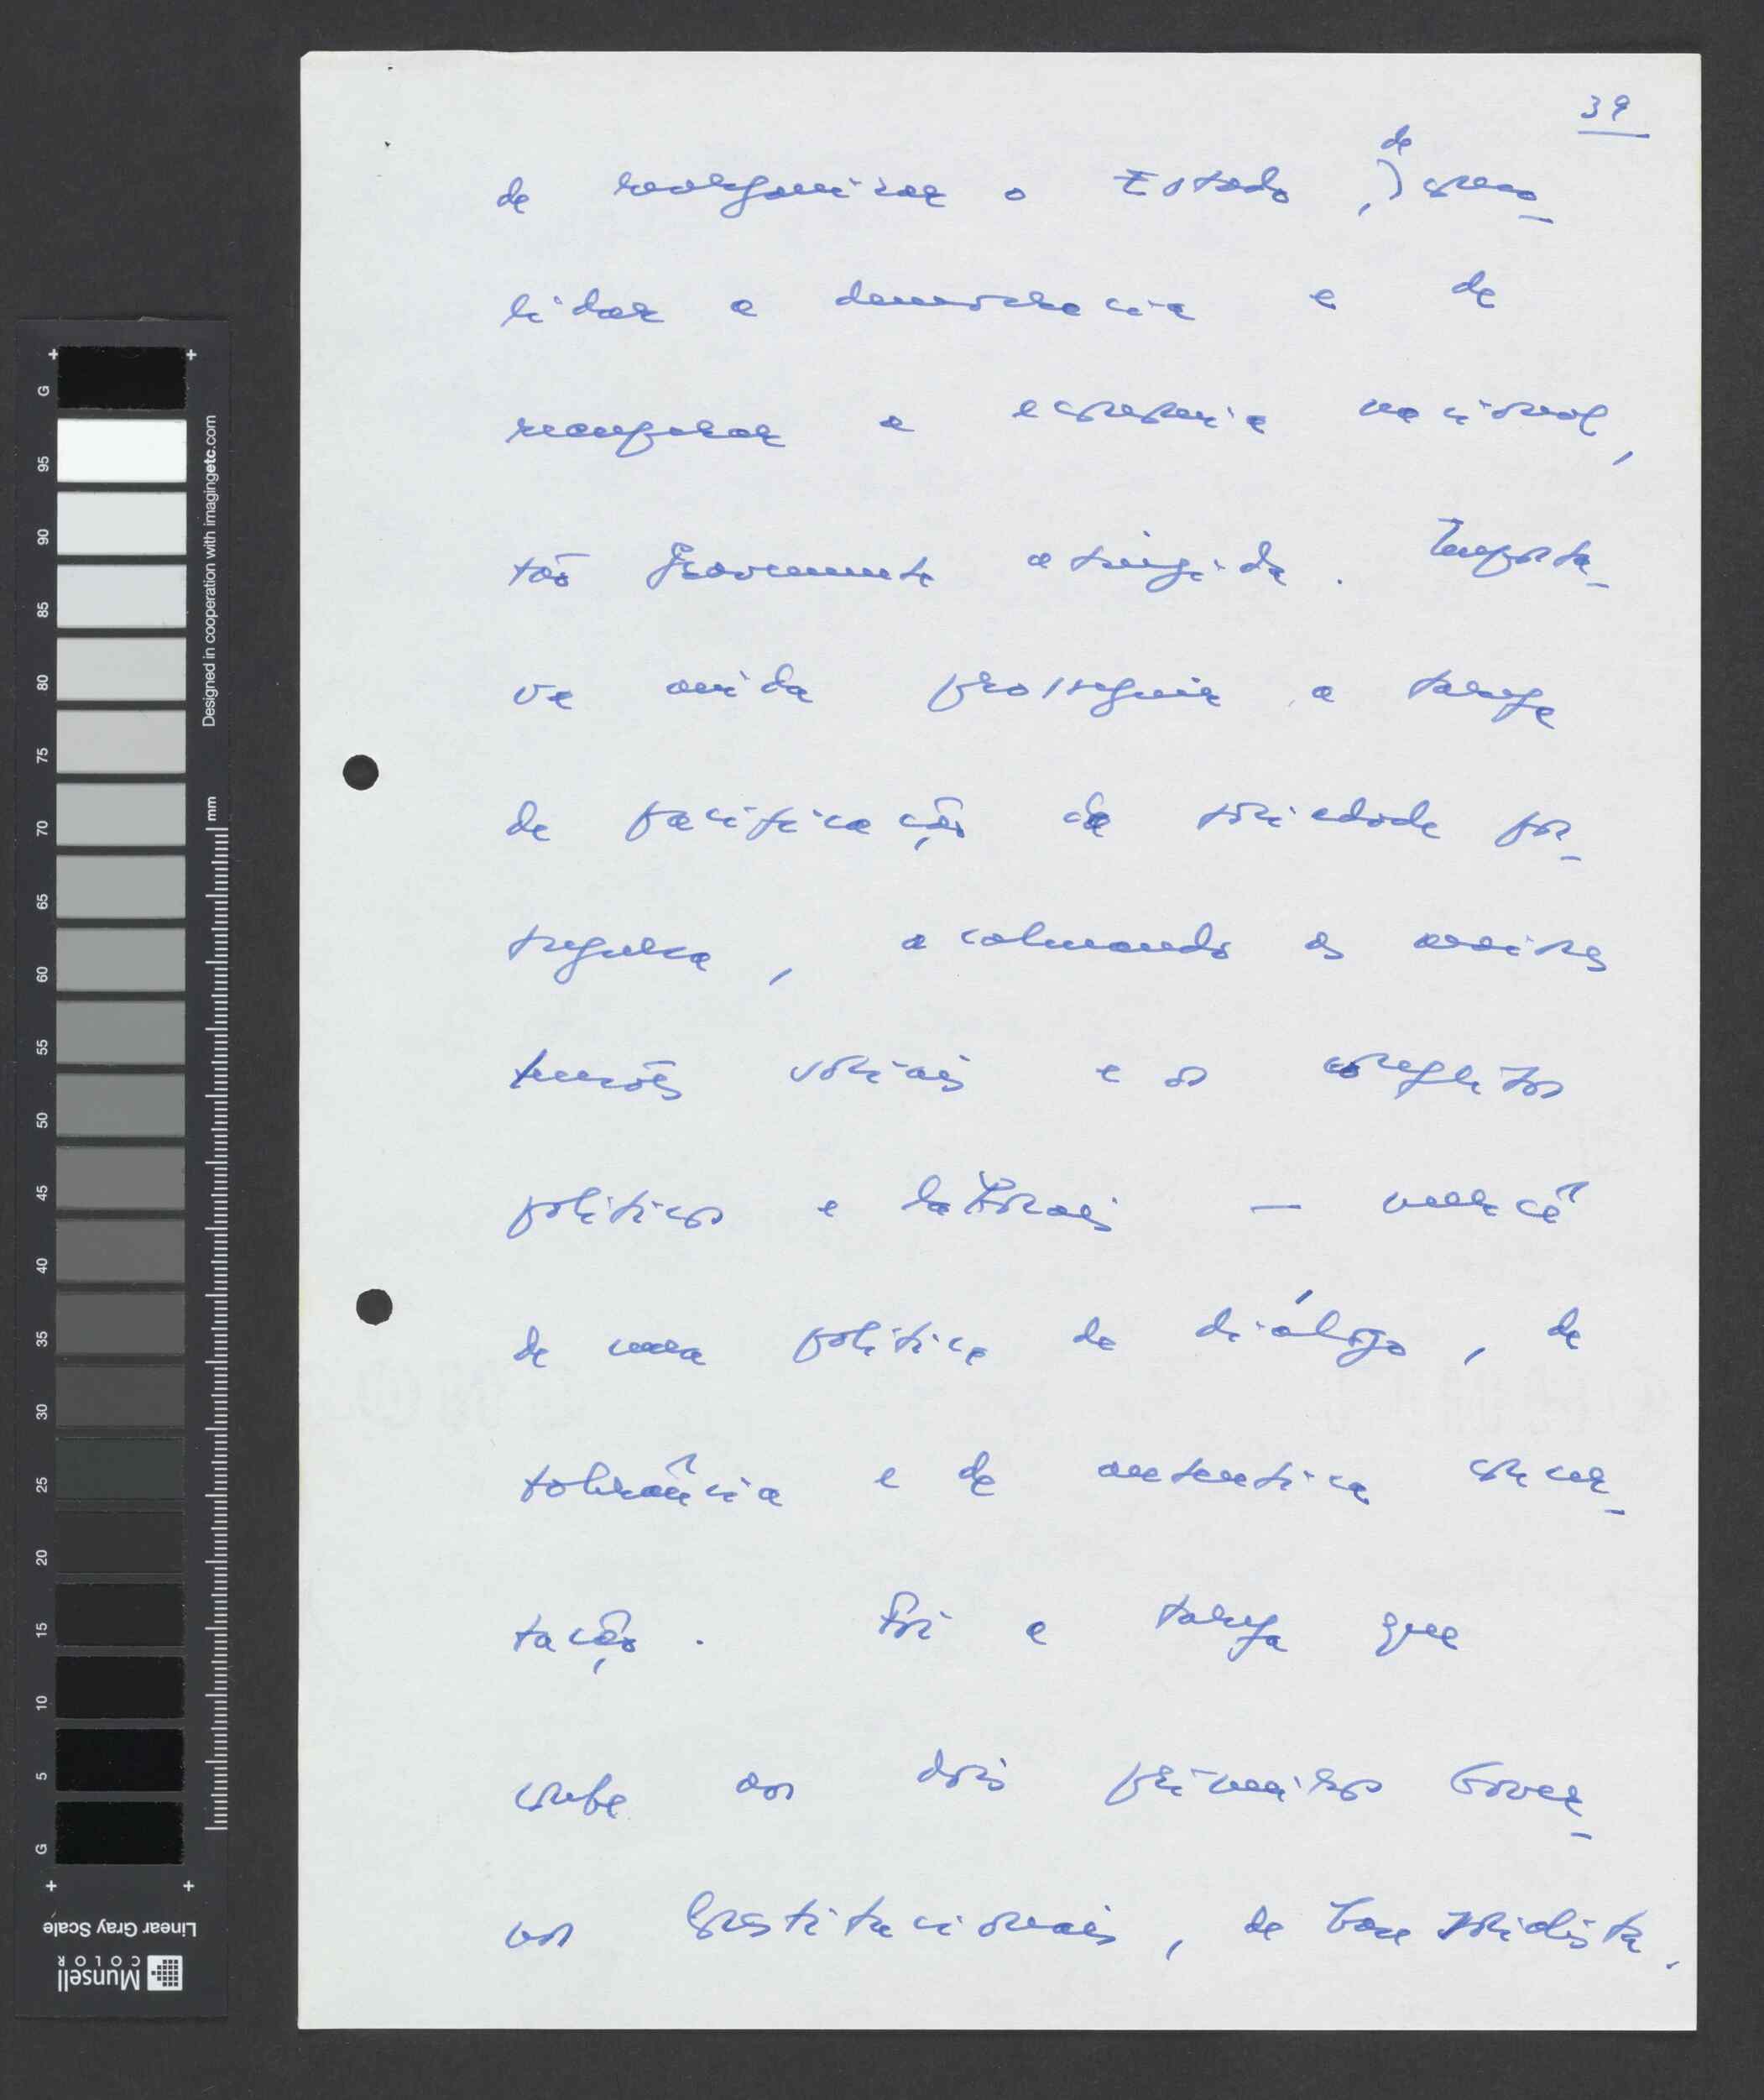 39
de reorganizar o Estado, de conso-
lidar a democracia e de
recuperar a economia nacional,
tão gravemente atingida. Importa-
va ainda prosseguir a tarefa
de pacificação da sociedade por-
tuguesa, acalmando as
tensões sociais e os conflitos
políticos e laborais — mercê
de uma política de diálogo, de
tolerância e de autentica concer-
tação. Foi a tarefa que
coube aos dois primeiros Gover-
nos Constitucionais, de base socialista.
G
95
90
85
80
75
70
65
60
55
50
45
40
35
30
25
20
15
10
5
G
Designed in cooperation with imagingetc.com
mm
Linear Gray Scale
Munsell
COLOR